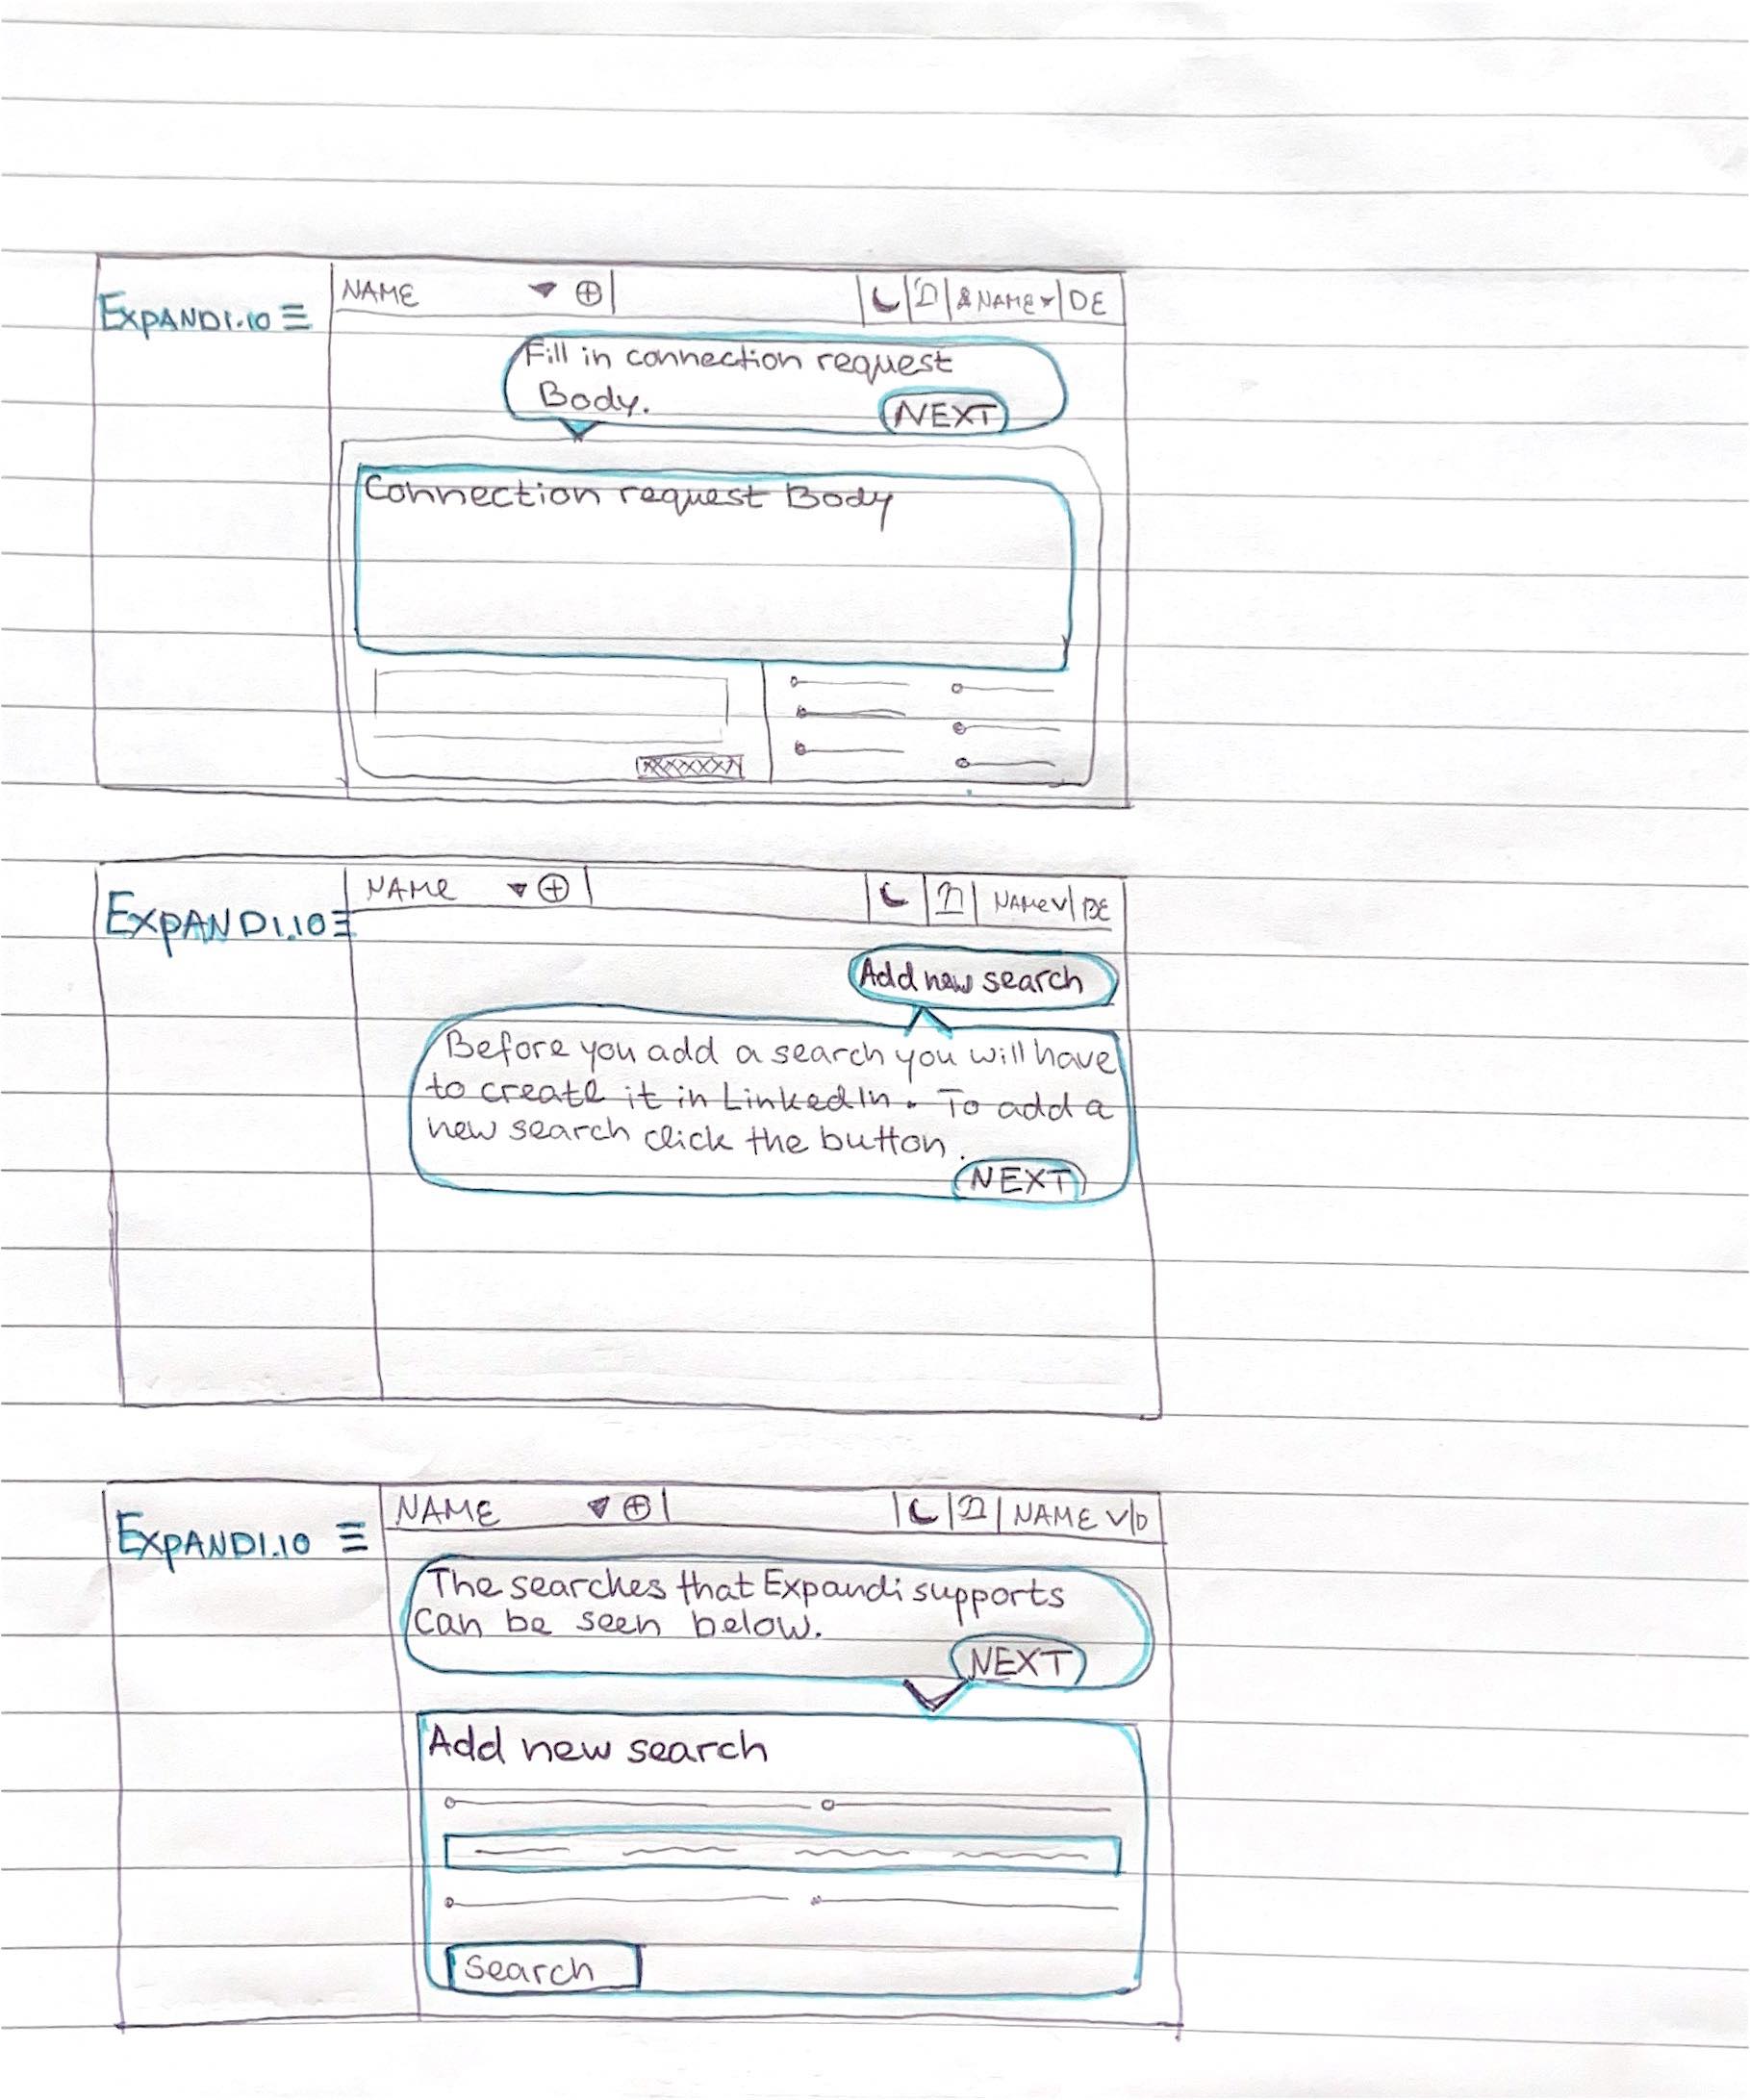 EXPANDI.IO
NAME
NAME
DE
Fill in connection request
Body.
NEXT
Connection request Body
EXPANDI.IO
NAMe
NAMe
DE
Add new search
Before you add a search you will have
to create it in LinkedIn. To add a
new search click the button.
NEXT
EXPANDI.IO
NAME
NAME
D
The searches that Expandi supports
can be seen below.
NEXT
Add new search
Search